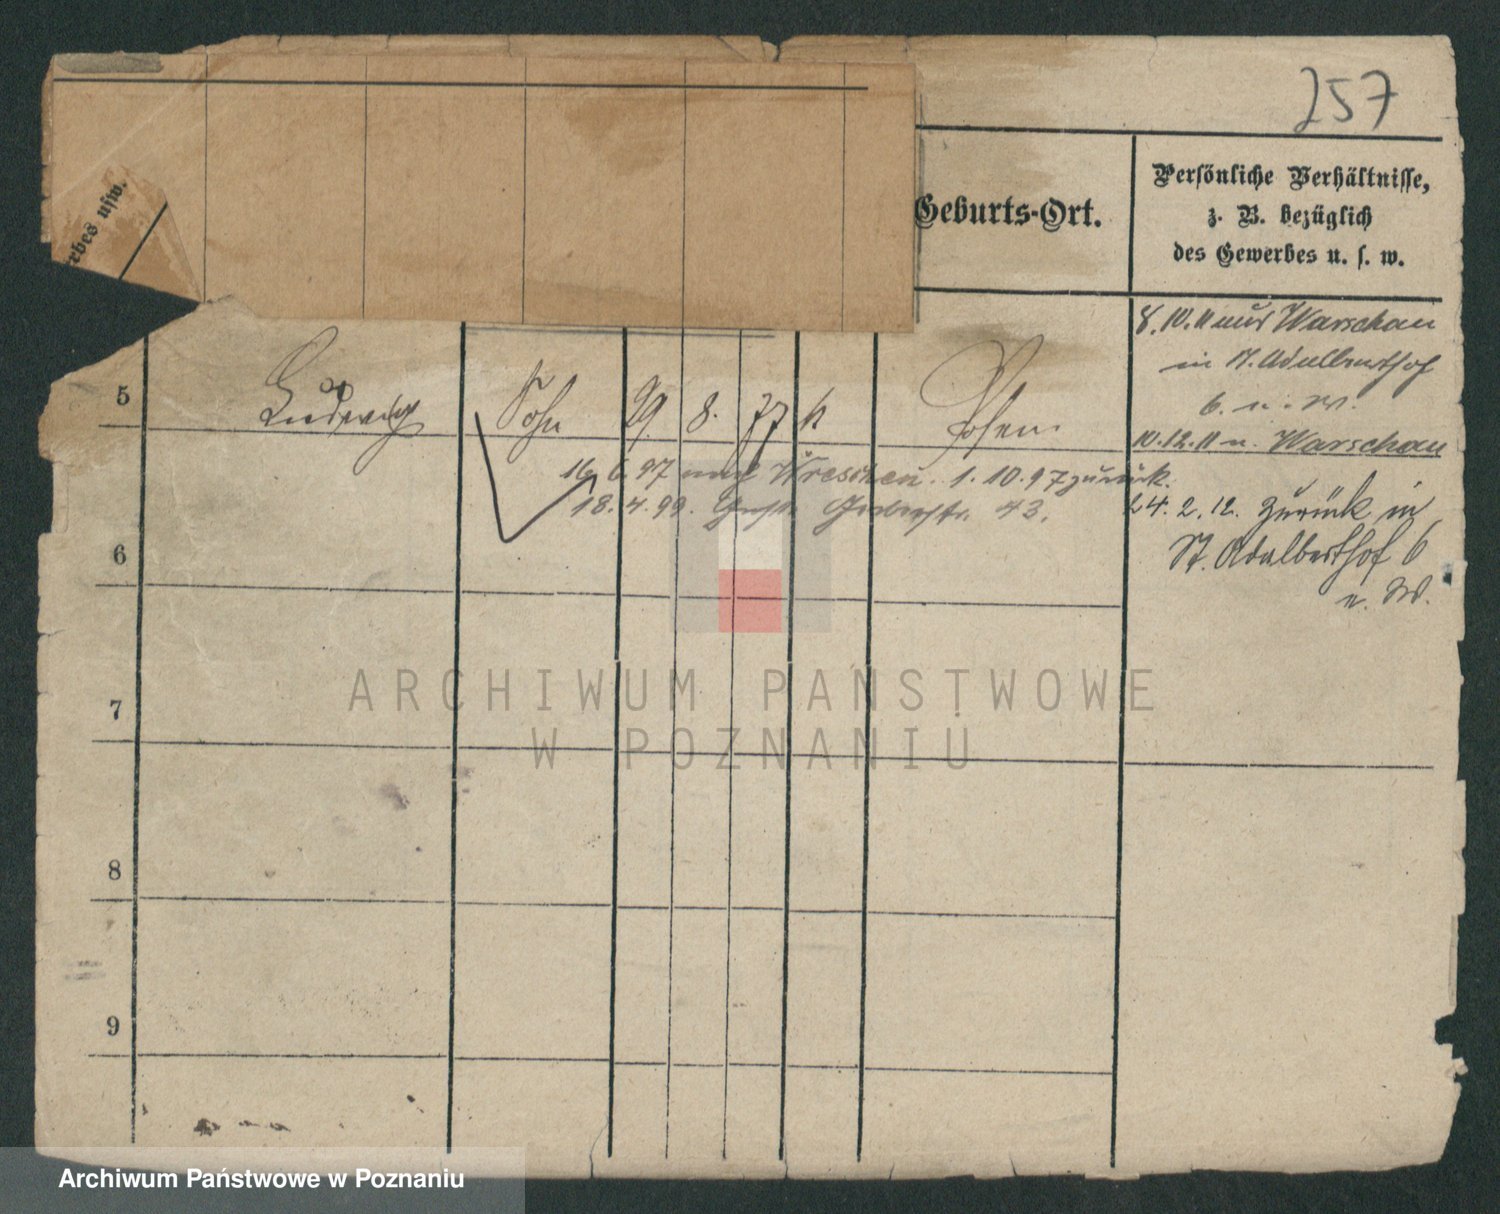 257
erbes usw.
Geburts-Ort.
Persönliche Verhältnisse,
z. B. bezüglich
des Gewerbes u. s. w.
8.10.11 aus Warschau
in St. Adalberthof
6. u. W.
5 Ludwig Sohn 29. 8. 77 k Posen.
10.12.11 n. Warschau
16. 6. 97 nach Wreschen. 1. 10. 97 zurück.
18. 4. 99. 43.
24. 2. 12. zurück in
St. Adalberthof 6
u. W.
6
7
8
9
ARCHIWUM PAŃSTWOWE
W POZNANIU
Archiwum Państwowe w Poznaniu